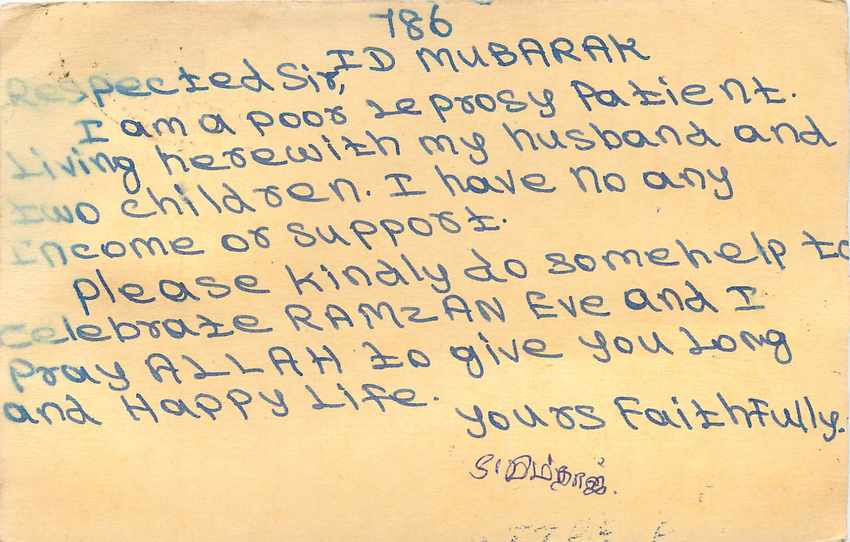 786
ID MUBARAK
Respected Sir,
I am a poor Leprosy Patient.
Living herewith my husband and
two children. I have no any
Income or support.
please kindly do somehelp to
celebrate RAMZAN Eve and I
pray ALLAH to give you Long
and Happy Life.
yours Faithfully.
மும்தாஜ்.